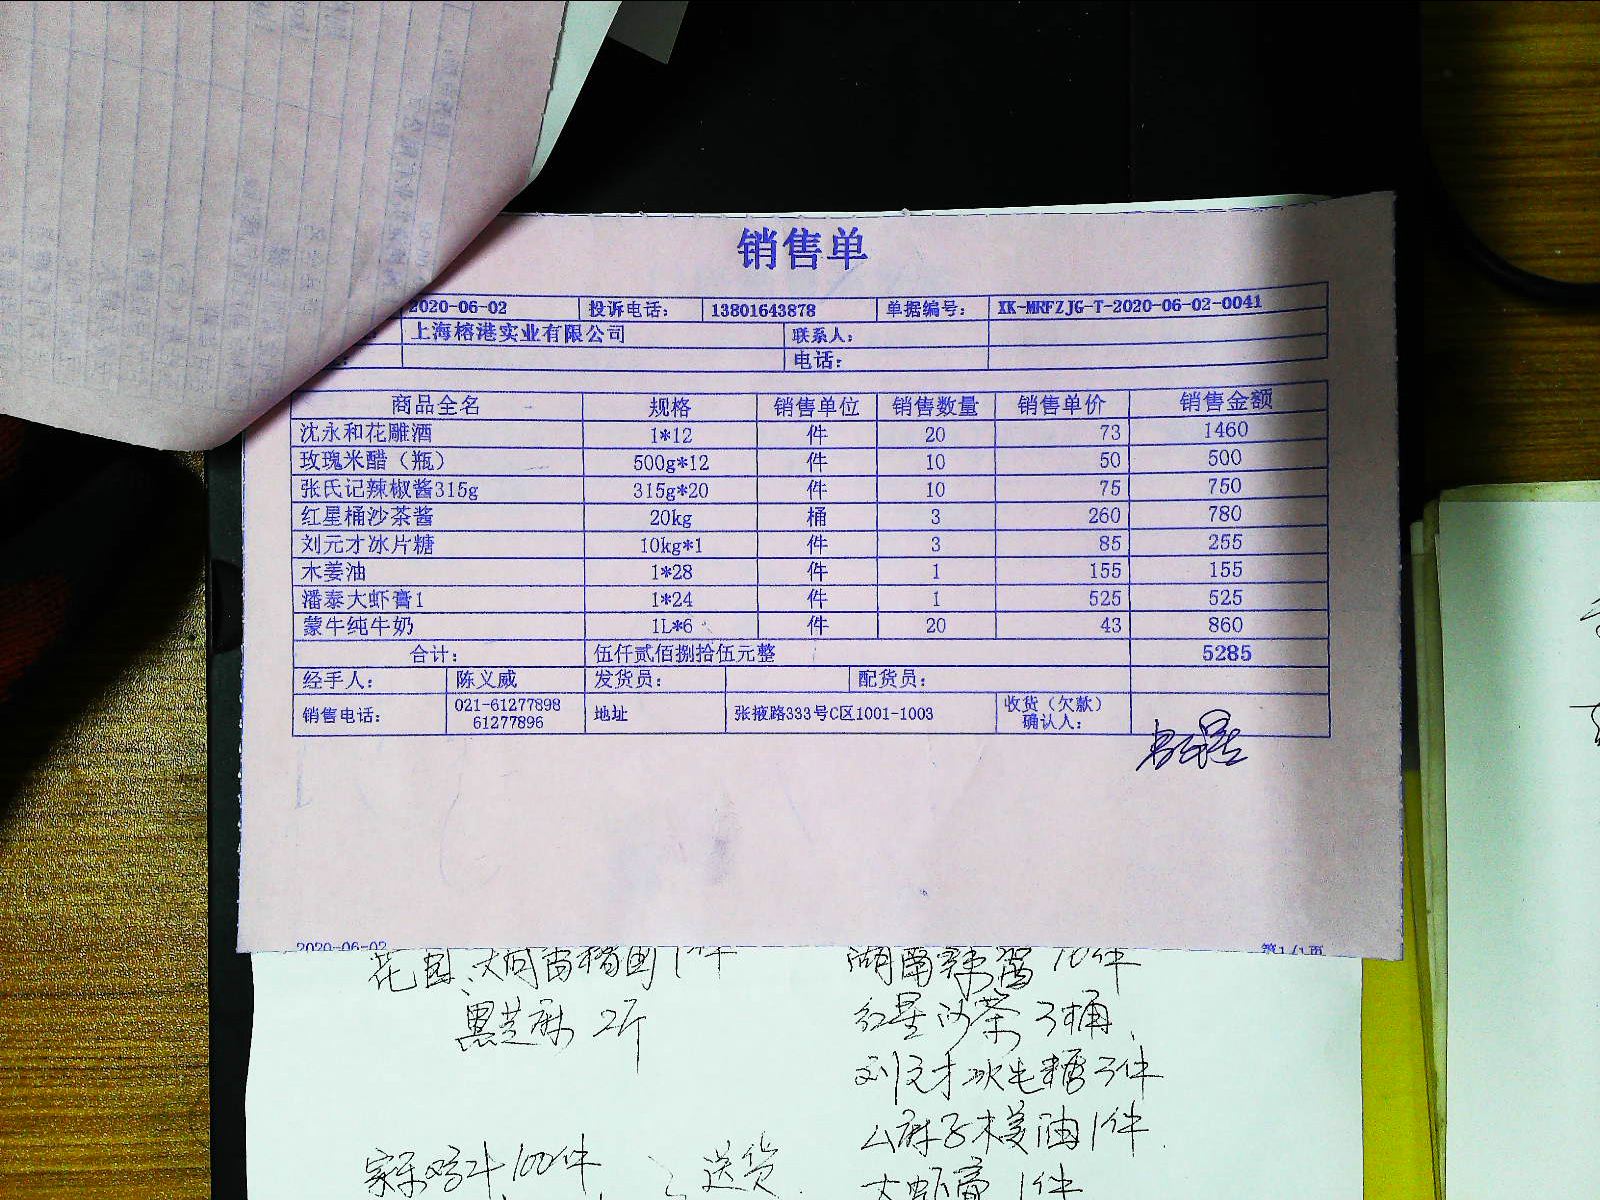 销售单
2020-06-02 投诉电话： 13801643878 单据编号： XK-MRFZJG-T-2020-06-02-0041
上海榕港实业有限公司 联系人：
电话：
商品全名 规格 销售单位 销售数量 销售单价 销售金额
沈永和花雕酒 1*12 件 20 73 1460
玫瑰米醋（瓶） 500g*12 件 10 50 500
张氏记辣椒酱315g 315g*20 件 10 75 750
红星桶沙茶酱 20kg 桶 3 260 780
刘元才冰片糖 10kg*1 件 3 85 255
木姜油 1*28 件 1 155 155
潘泰大虾膏1 1*24 件 1 525 525
蒙牛纯牛奶 1L*6 件 20 43 860
合计： 伍仟贰佰捌拾伍元整 5285
经手人： 陈义威 发货员： 配货员：
销售电话： 021-61277898 61277896 地址 张掖路333号C区1001-1003 收货（欠款）确认人：
2020-06-02 第1/1页
湖南辣酱10件
黑芝麻 2斤 红星沙茶 3桶
3件
木姜油1件
100件 送货 大虾膏 1件